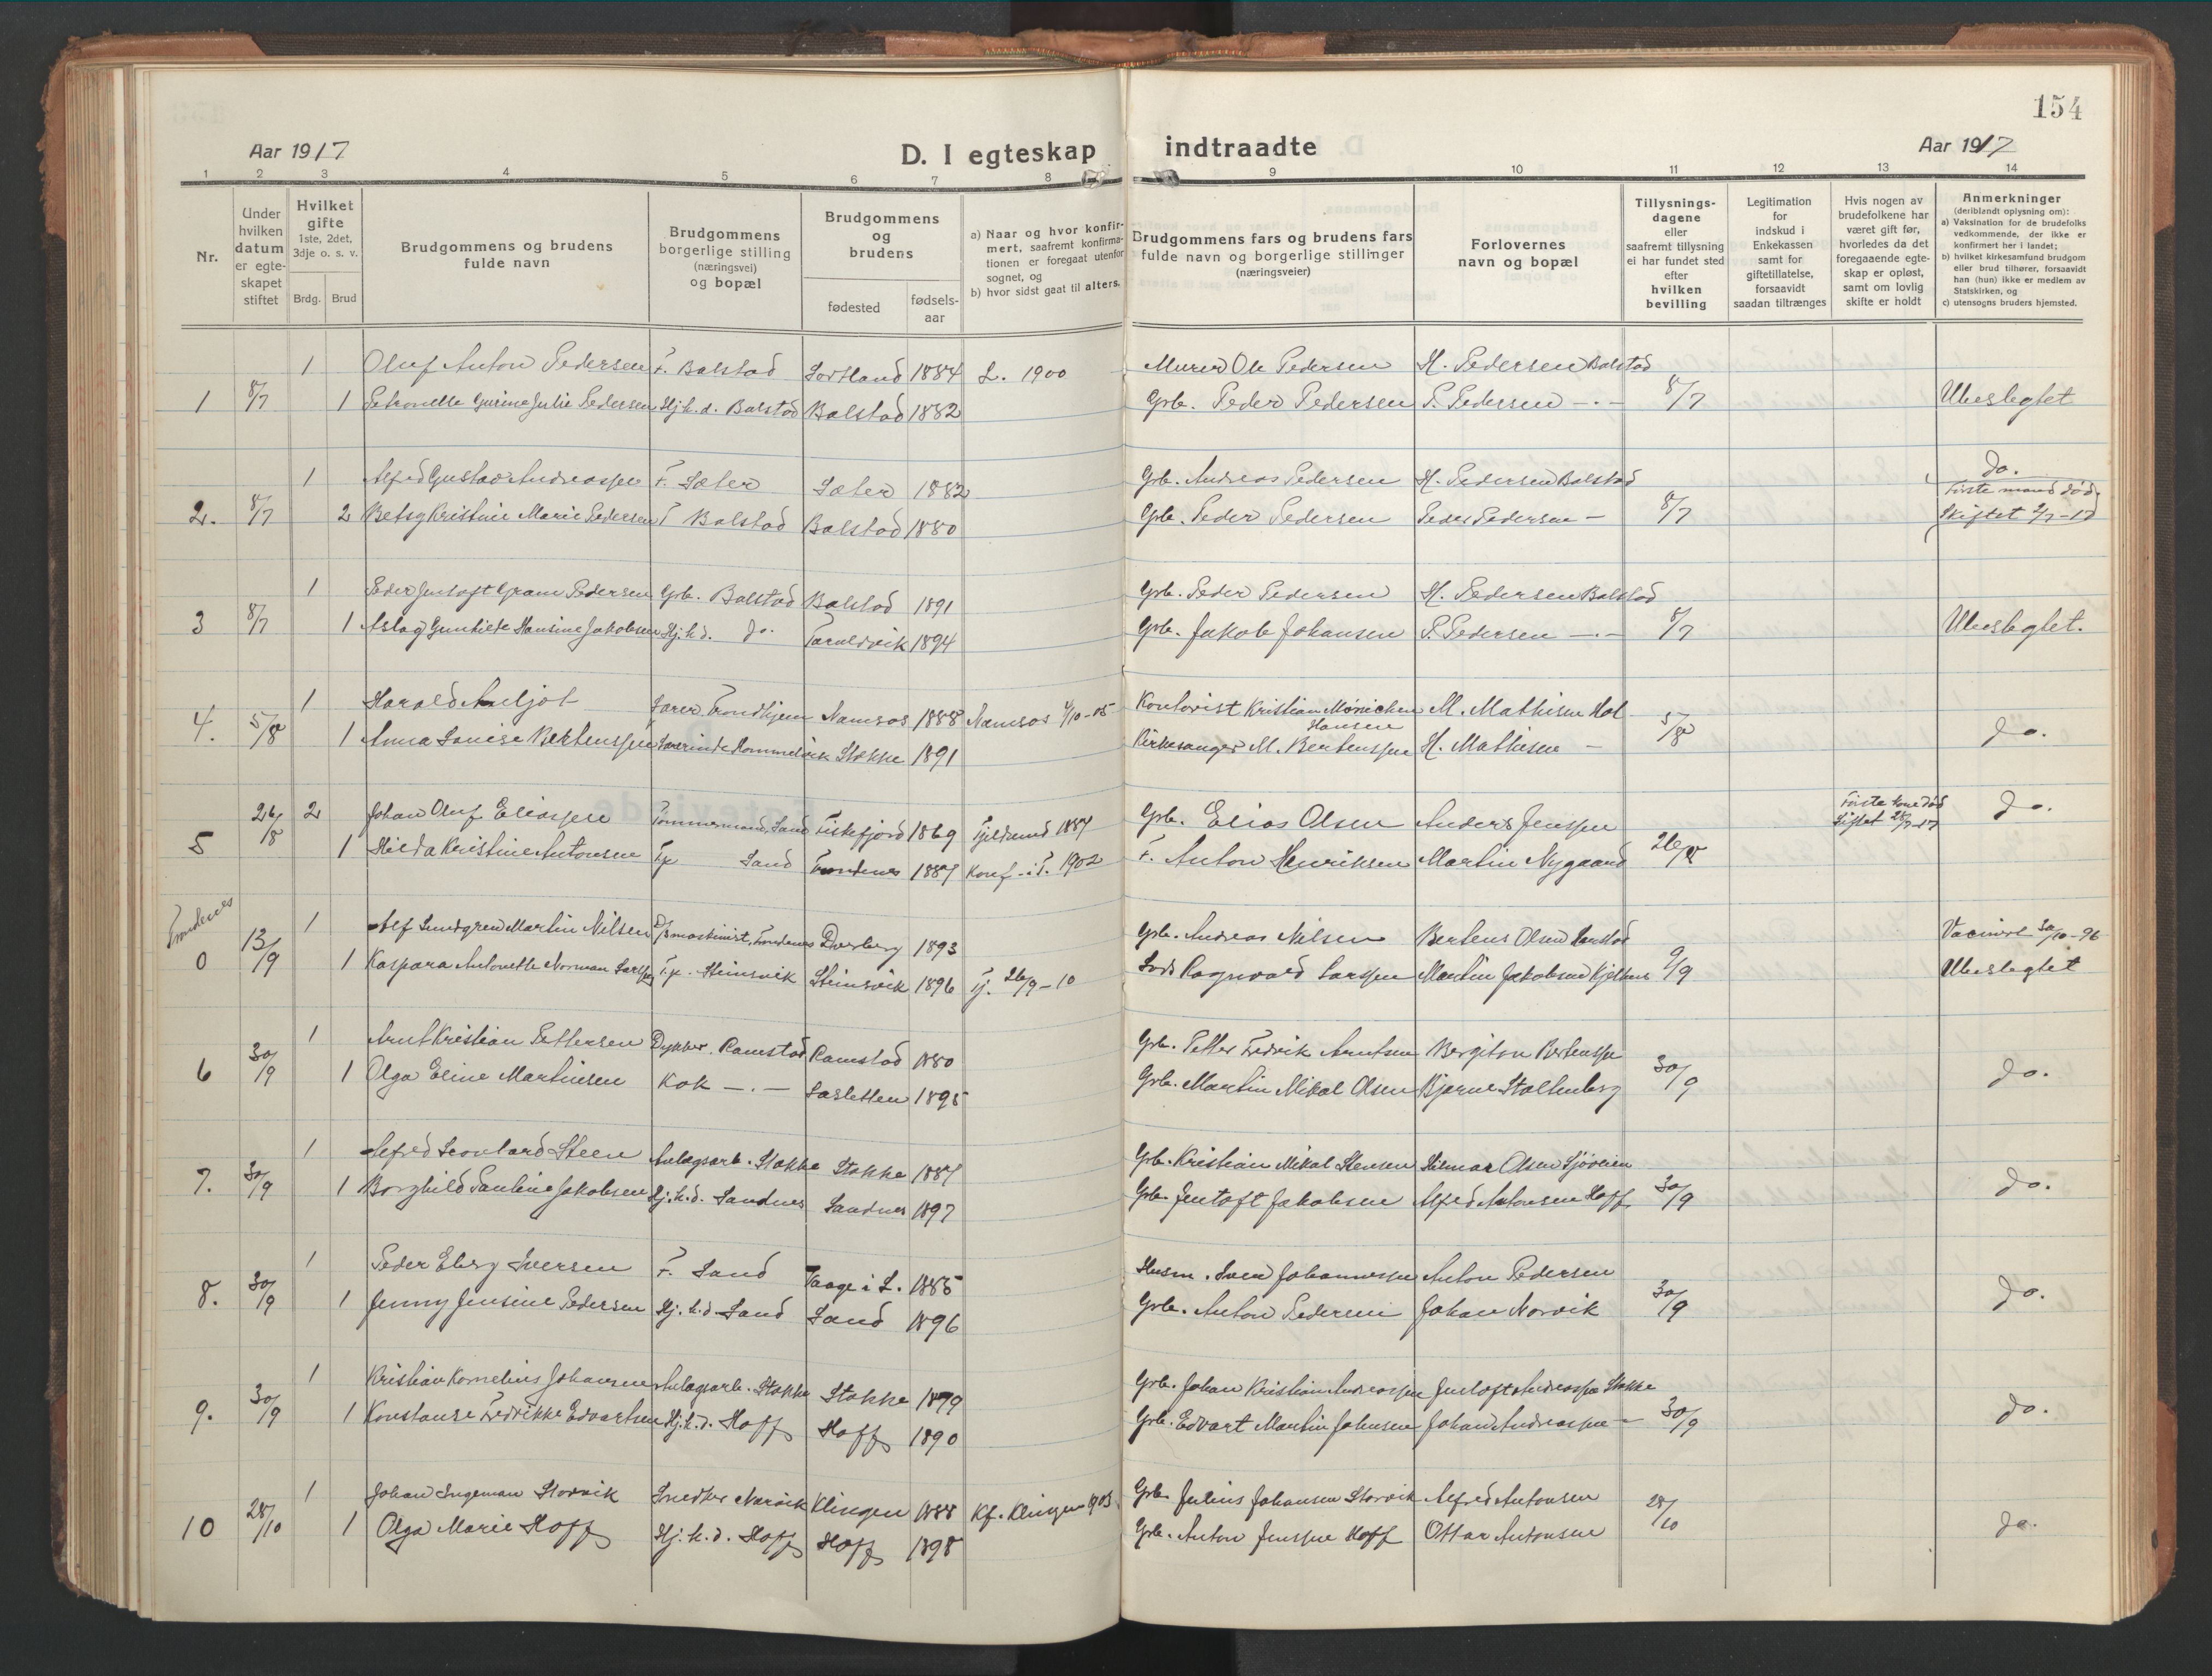 154
Aar 1917
D. I egteskap indtraadte
Aar 1917
1 2 3 4 5 6 7 8 9 10 11 12 13 14
Nr.
Under hvilken datum er egteskapet stiftet
Hvilket gifte 1ste, 2det, 3dje o. s. v.
Brdg. Brud
Brudgommens og brudens fulde navn
Brudgommens borgerlige stilling (næringsvei) og bopæl
Brudgommens og brudens
fødested
fødsels-aar
a) Naar og hvor konfirmert, saafremt konfirmationen er foregaat utenfor sognet, og
b) hvor sidst gaat til alters.
Brudgommens fars og brudens fars fulde navn og borgerlige stillinger (næringsveier)
Forlovernes navn og bopæl
Tillysningsdagene eller saafremt tillysning ei har fundet sted efter hvilken bevilling
Legitimation for indskud i Enkekassen samt for giftetillatelse, forsaavidt saadan tiltrænges
Hvis nogen av brudefolkene har været gift før, hvorledes da det foregaaende egteskap er opløst, samt om lovlig skifte er holdt
Anmerkninger (deriblandt oplysning om):
a) Vaksination for de brudefolks vedkommende, der ikke er konfirmert her i landet;
b) hvilket kirkesamfund brudgom eller brud tilhører, forsaavidt han (hun) ikke er medlem av Statskirken, og
c) utensogns bruders hjemsted.
1 Oluf Anton Pedersen F. Balstad Sortland 1884 S. 1900 Murer Ole Pedersen H. Pedersen Balstad
1 8/7 1 Petronelle Gurine Julie Pedersen Hj.h.d. Balstad Balstad 1882 Grb. Peder Pedersen P. Pedersen -.- 8/7 Ubeslegtet
1 Alfred Gustav Andreassen F. Sæter Sæter 1882 Grb. Andreas Pedersen H. Pedersen Balstad do.
2. 8/7 2 Betsy Kristine Marie Pedersen Balstad Balstad 1880 Grb. Peder Pedersen Peder Pedersen - 8/7 Første mand død. Skiftet
1 Peder Jentoft Gram Pedersen Grb. Balstad Balstad 1891 Grb. Peder Pedersen H. Pedersen Balstad
3 8/7 1 Aslaug Hansine Jakobsen Hj.h.d. do. Taraldsvik 1894 Grb. Jakob Johansen P. Pedersen -.- 8/7 Ubeslegtet.
1 Harald Auljot Lærer, Trondhjem Namsos 1888 Namsos 1/10-05 Kontorist Kristian Mønichen Hansen M. Mathisen Hol
4. 5/8 1 Anna Lovise Bertenssen Lærerinde Hommelvik Stokke 1891 Kirkesanger M. Bertenssen H. Mathisen - 5/8 do.
26/8 2 Johan Oluf Eliassen Tømmermand, Sand Fiskefjord 1869 Tjeldsund 1884 Grb. Elias Olsen Anders Jenssen Første kone død do.
5 1 Hilda Kristine Antonsen Tj. Sand Trondenes 1887 Konf. i T. 1902 F. Anton Henriksen Martin Nygaard 26/8
Trondenes 1 Alf Lundgren Martin Nilsen D/S maskinist, Trondenes Dverberg 1893 Grb. Andreas Nilsen Bertens Olsen Harstad Vacinert 30/10-96
0 13/9 1 Kaspara Antonette Norman Larssen Tj. Steinsvik Steinsvik 1896 Tj. 26/9-10 Lods Ragnvald Larssen Martin Jakobsen 9/9 Ubeslegtet
1 Arnt Kristian Pettersen Dykker. Ramstad Ramstad 1880 Grb. Petter Fredrik Arntsen Bergiton Bertenssen
6 30/9 1 Olga Eline Martinsen Kok -.- Sæsletten 1895 Grb. Martin Mikal Olsen Bjarne Stoltenberg 30/9 do.
1 Alfred Leonhard Steen Anlægsarb. Stokke Stokke 1887 Grb. Kristian Mikal Stensen Hilmar Olsen Sjøveien
7. 30/9 1 Borghild Pauline Jakobsen Hj.h.d. Sandnes Sandnes 1897 Grb. Jentoft Jakobsen Alfred Antonsen Hoff 30/9 do.
1 Peder Eberg Iversen F. Sand Vaage i L. 1885 Husm. Iver Johannessen Anton Pedersen
8. 30/9 1 Jenny Jensine Pedersen Hj.h.d. Sand Sand 1896 Grb. Anton Pedersen Johan Norvik 30/9 do.
1 Kristian Kornelius Johansen Anlægsarb. Stokke Stokke 1879 Grb. Johan Kristian Andreassen Jentoft Andreassen Stokke
9. 30/9 1 Konstanse Fredrikke Edvartsen Hj.h.d. Hoff Hoff 1890 Grb. Edvart Martin Johnsen Johan Andreassen - 30/9 do.
1 Johan Ingeman Storvik Snedker Narvik Klingen 1888 Kf. Klingen 1903 Grb. Julius Johansen Storvik Alfred Antonsen
10 28/10 1 Olga Marie Hoff Hj.h.d. Hoff Hoff 1898 Grb. Anton Jenssen Hoff Ottar Antonsen 28/10 do.